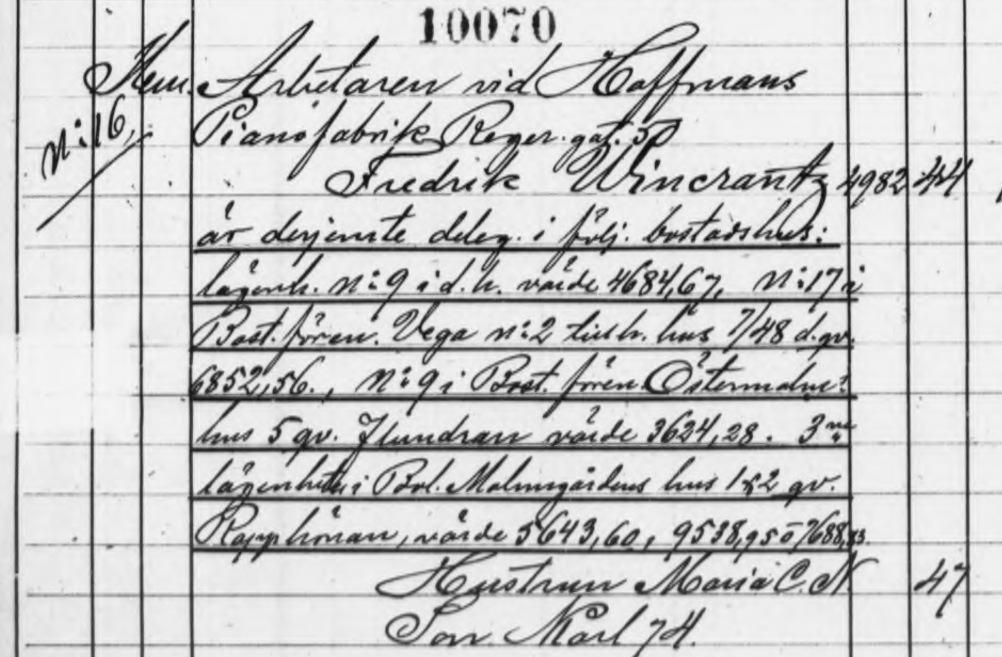 10070
Hem. Arbetaren vid Hoffmans
N:o 16, Pianofabrik Reger. gat. 50
Fredrik Wincrantz 4982 44
är derjemte deleg. i följ. bostadshus:
lägenh. N:o 9 i d. h. värde 4684,67, N:o 17 i
Bost. fören. Vega N:o 2 hus 7/48 d. qv.
6852,56., N:o 9 i Bost. fören. Östermalms
hus 5 qv. Flundran värde 3624,28. 3ne
lägenheter i Bol. Malmgårdens hus 1 & 2 qv.
Rapphönan, värde 5643,60, 9538,95 o 7688,83.
Hustrun Maria C. N. 47
Son. Karl 74.